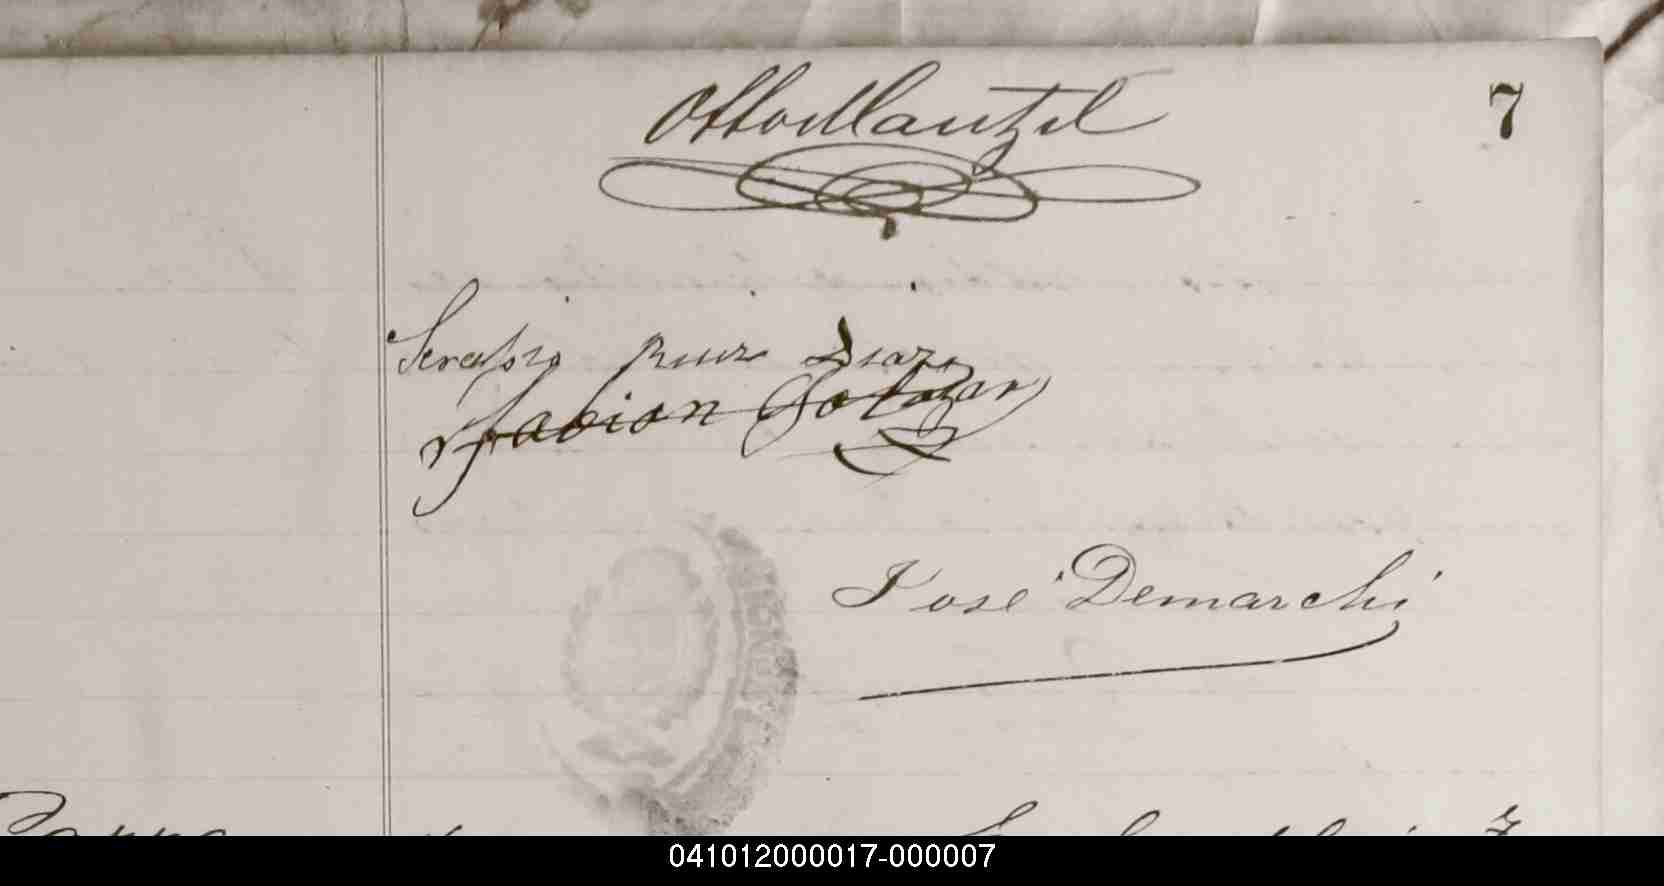 Otto Mantzel
7
Serapio Ruiz Diaz
Fabian Salazar
José Demarchi
041012000017-000007